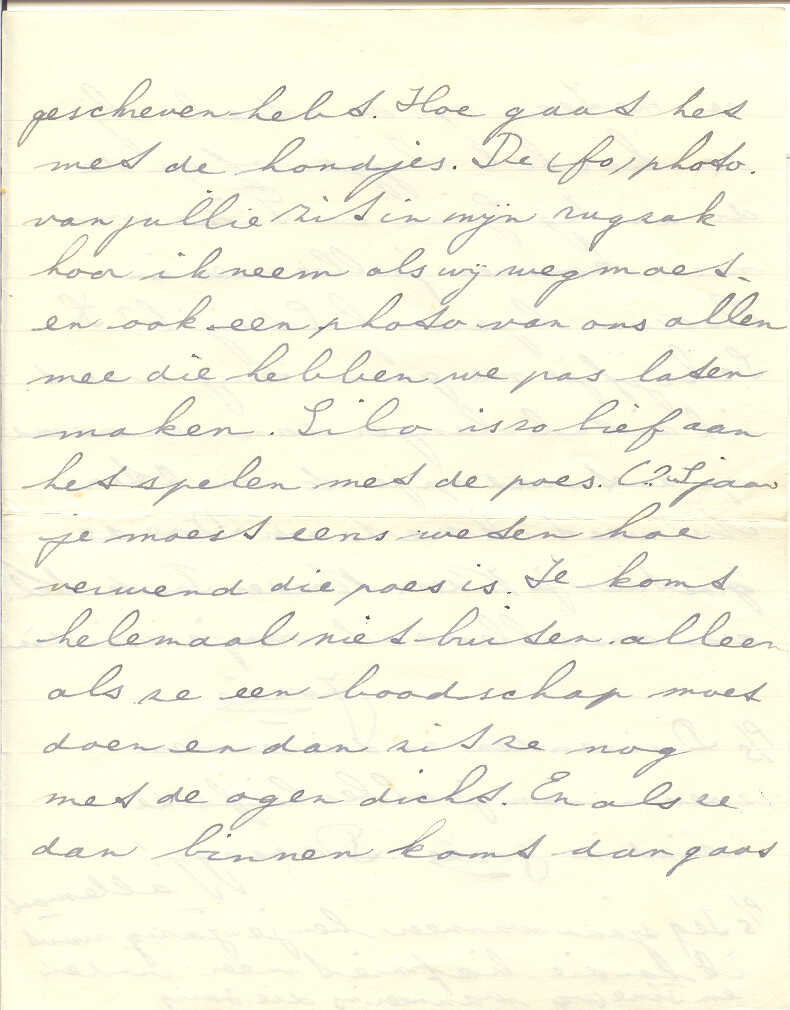 geschreven hebt. Hoe gaat het
met de hondjes. De (fo) photo.
van jullie zit in mijn rugzak
hoor ik neem als wij weg moet-
en ook een photo van ons allen
mee die hebben we pas laten
maken. Lilo is zo lief aan
het spelen met de poes. (2½ jaar
je moest eens weten hoe
verwend die poes is. Ze komt
helemaal niet buiten alleen
als ze een boodschap moet
doen en dan zit ze nog
met de ogen dicht. En als ze
dan binnen komt dan gaat